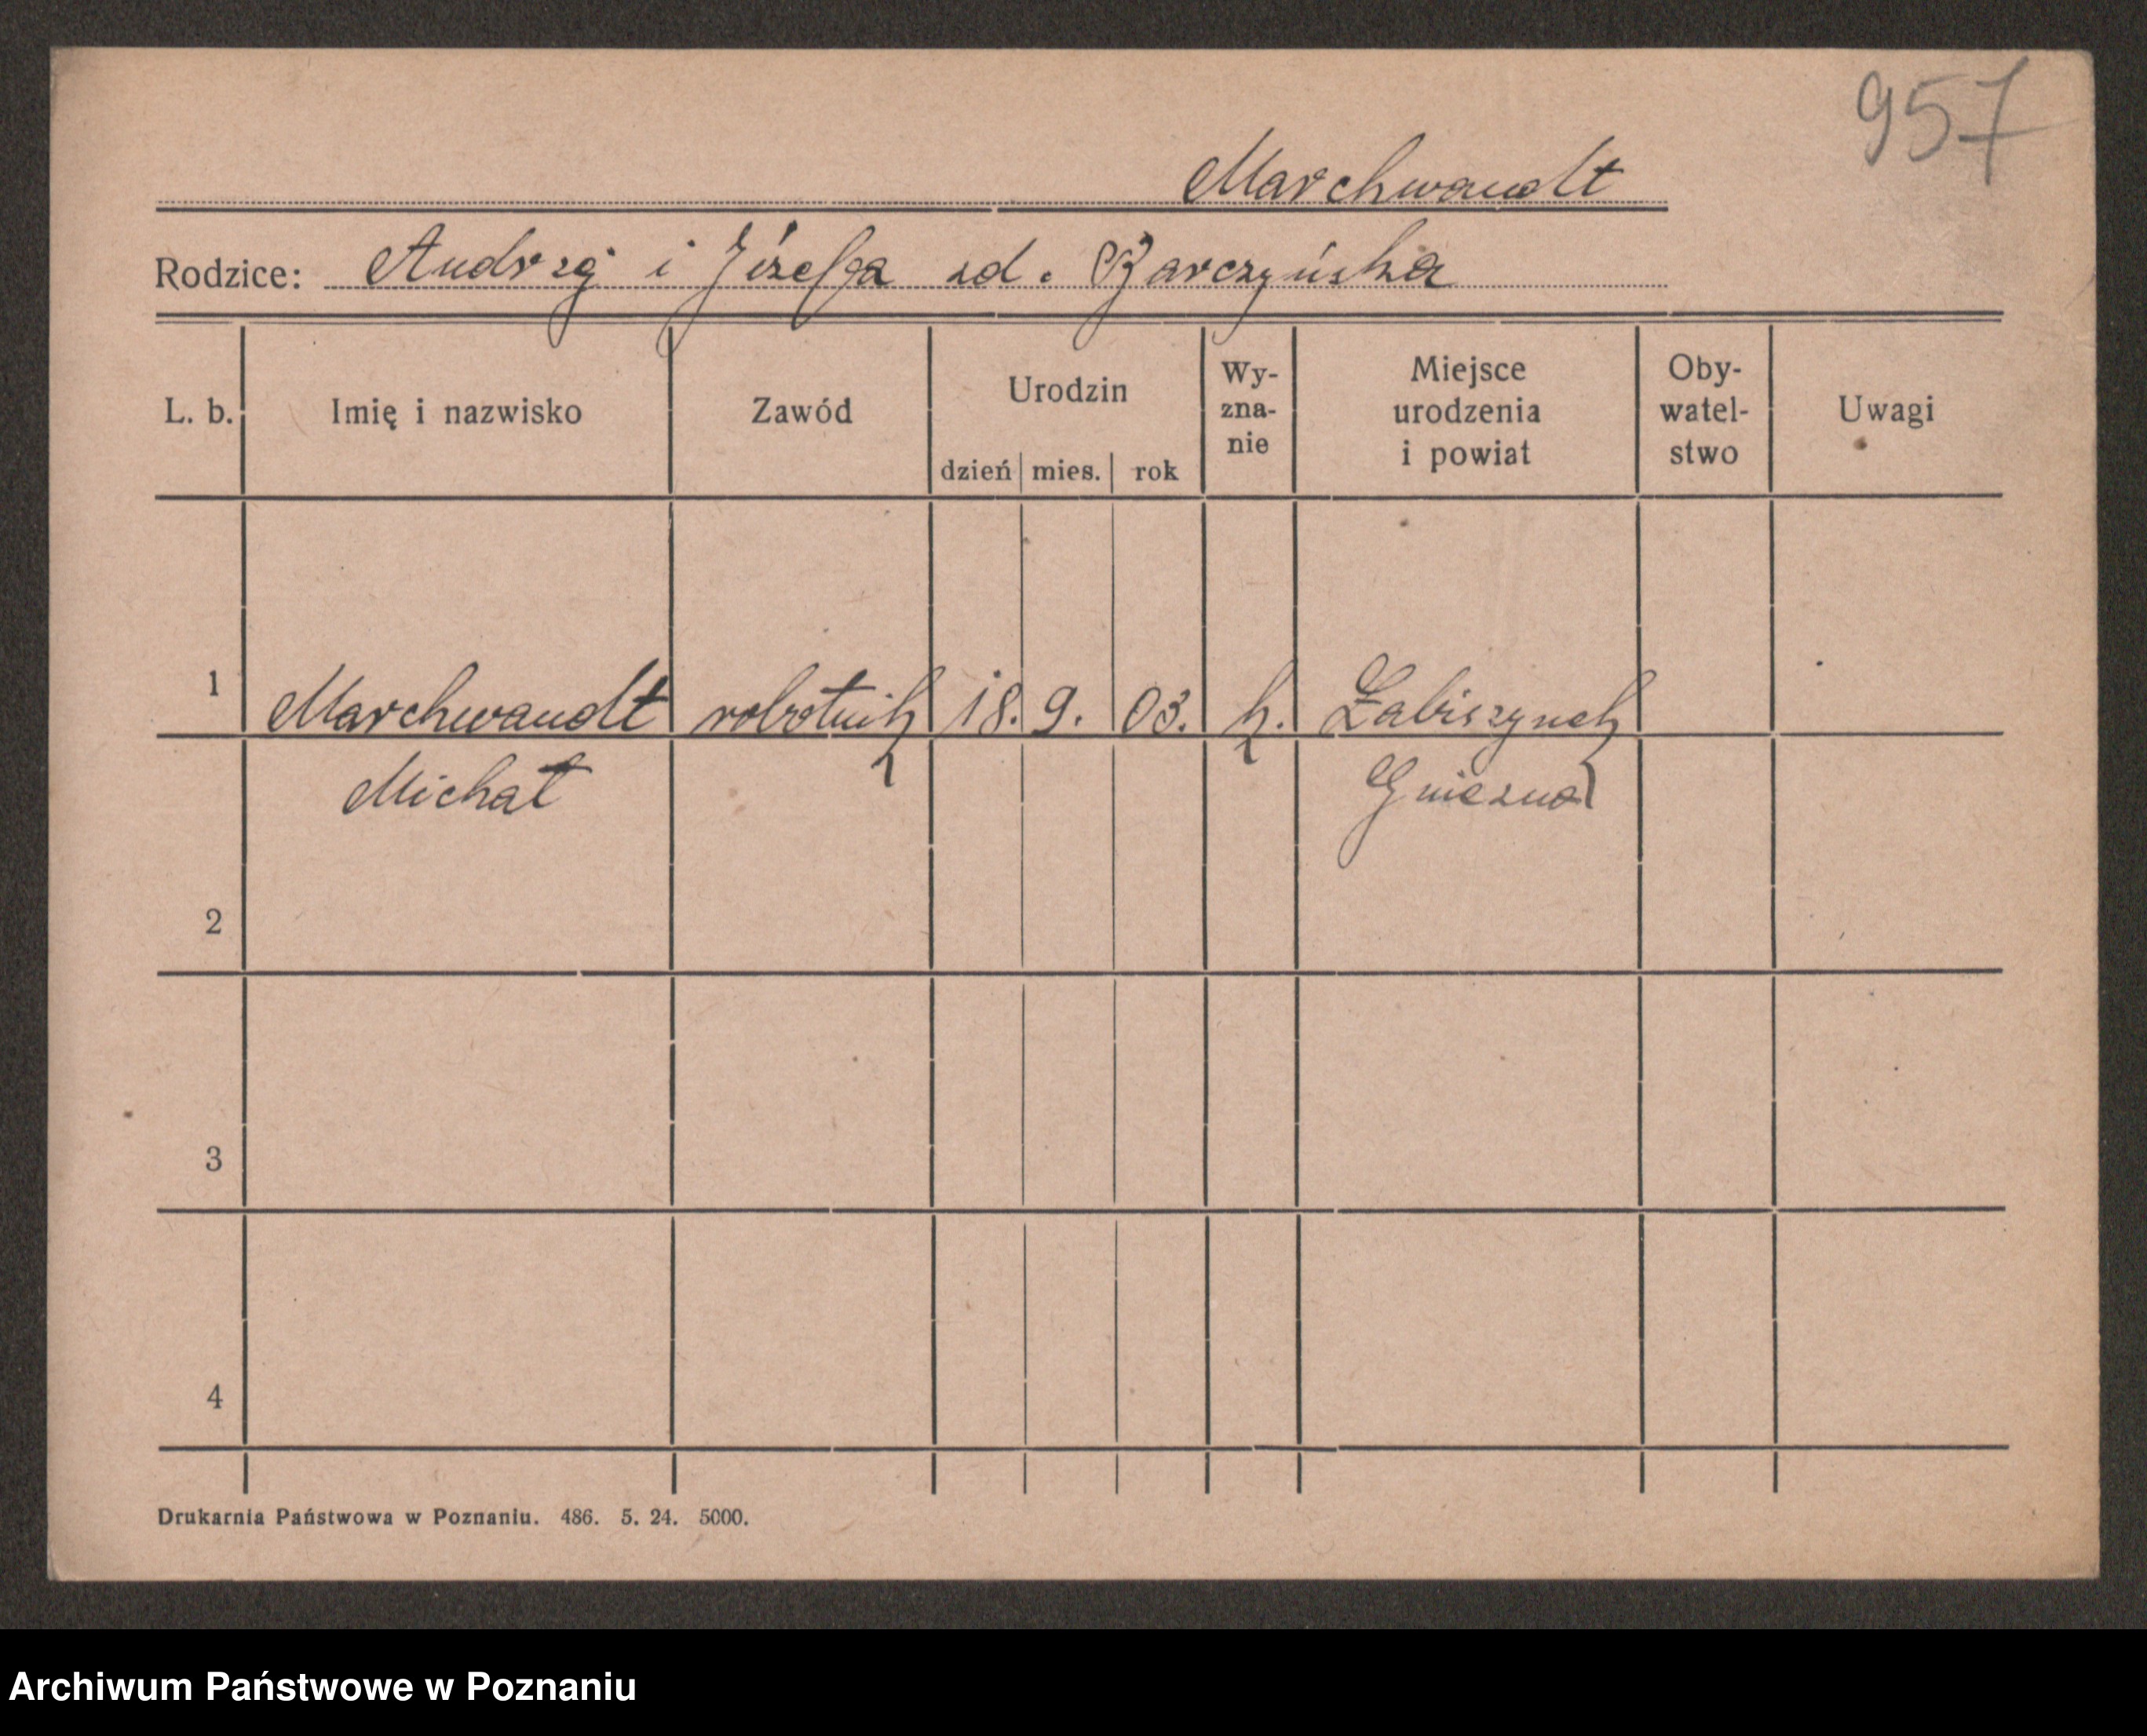 957
Marchwandt
Rodzice: Andrzej i Józefa zd. Barczyńska
L. b. Imię i nazwisko Zawód Urodzin dzień mies. rok Wy-zna-nie Miejsce urodzenia i powiat Oby-watel-stwo Uwagi
1 Marchwandt robotnik 18. 9. 03. k. Łabiszynek
Michał Gniezno
2
3
4
Drukarnia Państwowa w Poznaniu. 486. 5. 24. 5000.
Archiwum Państwowe w Poznaniu